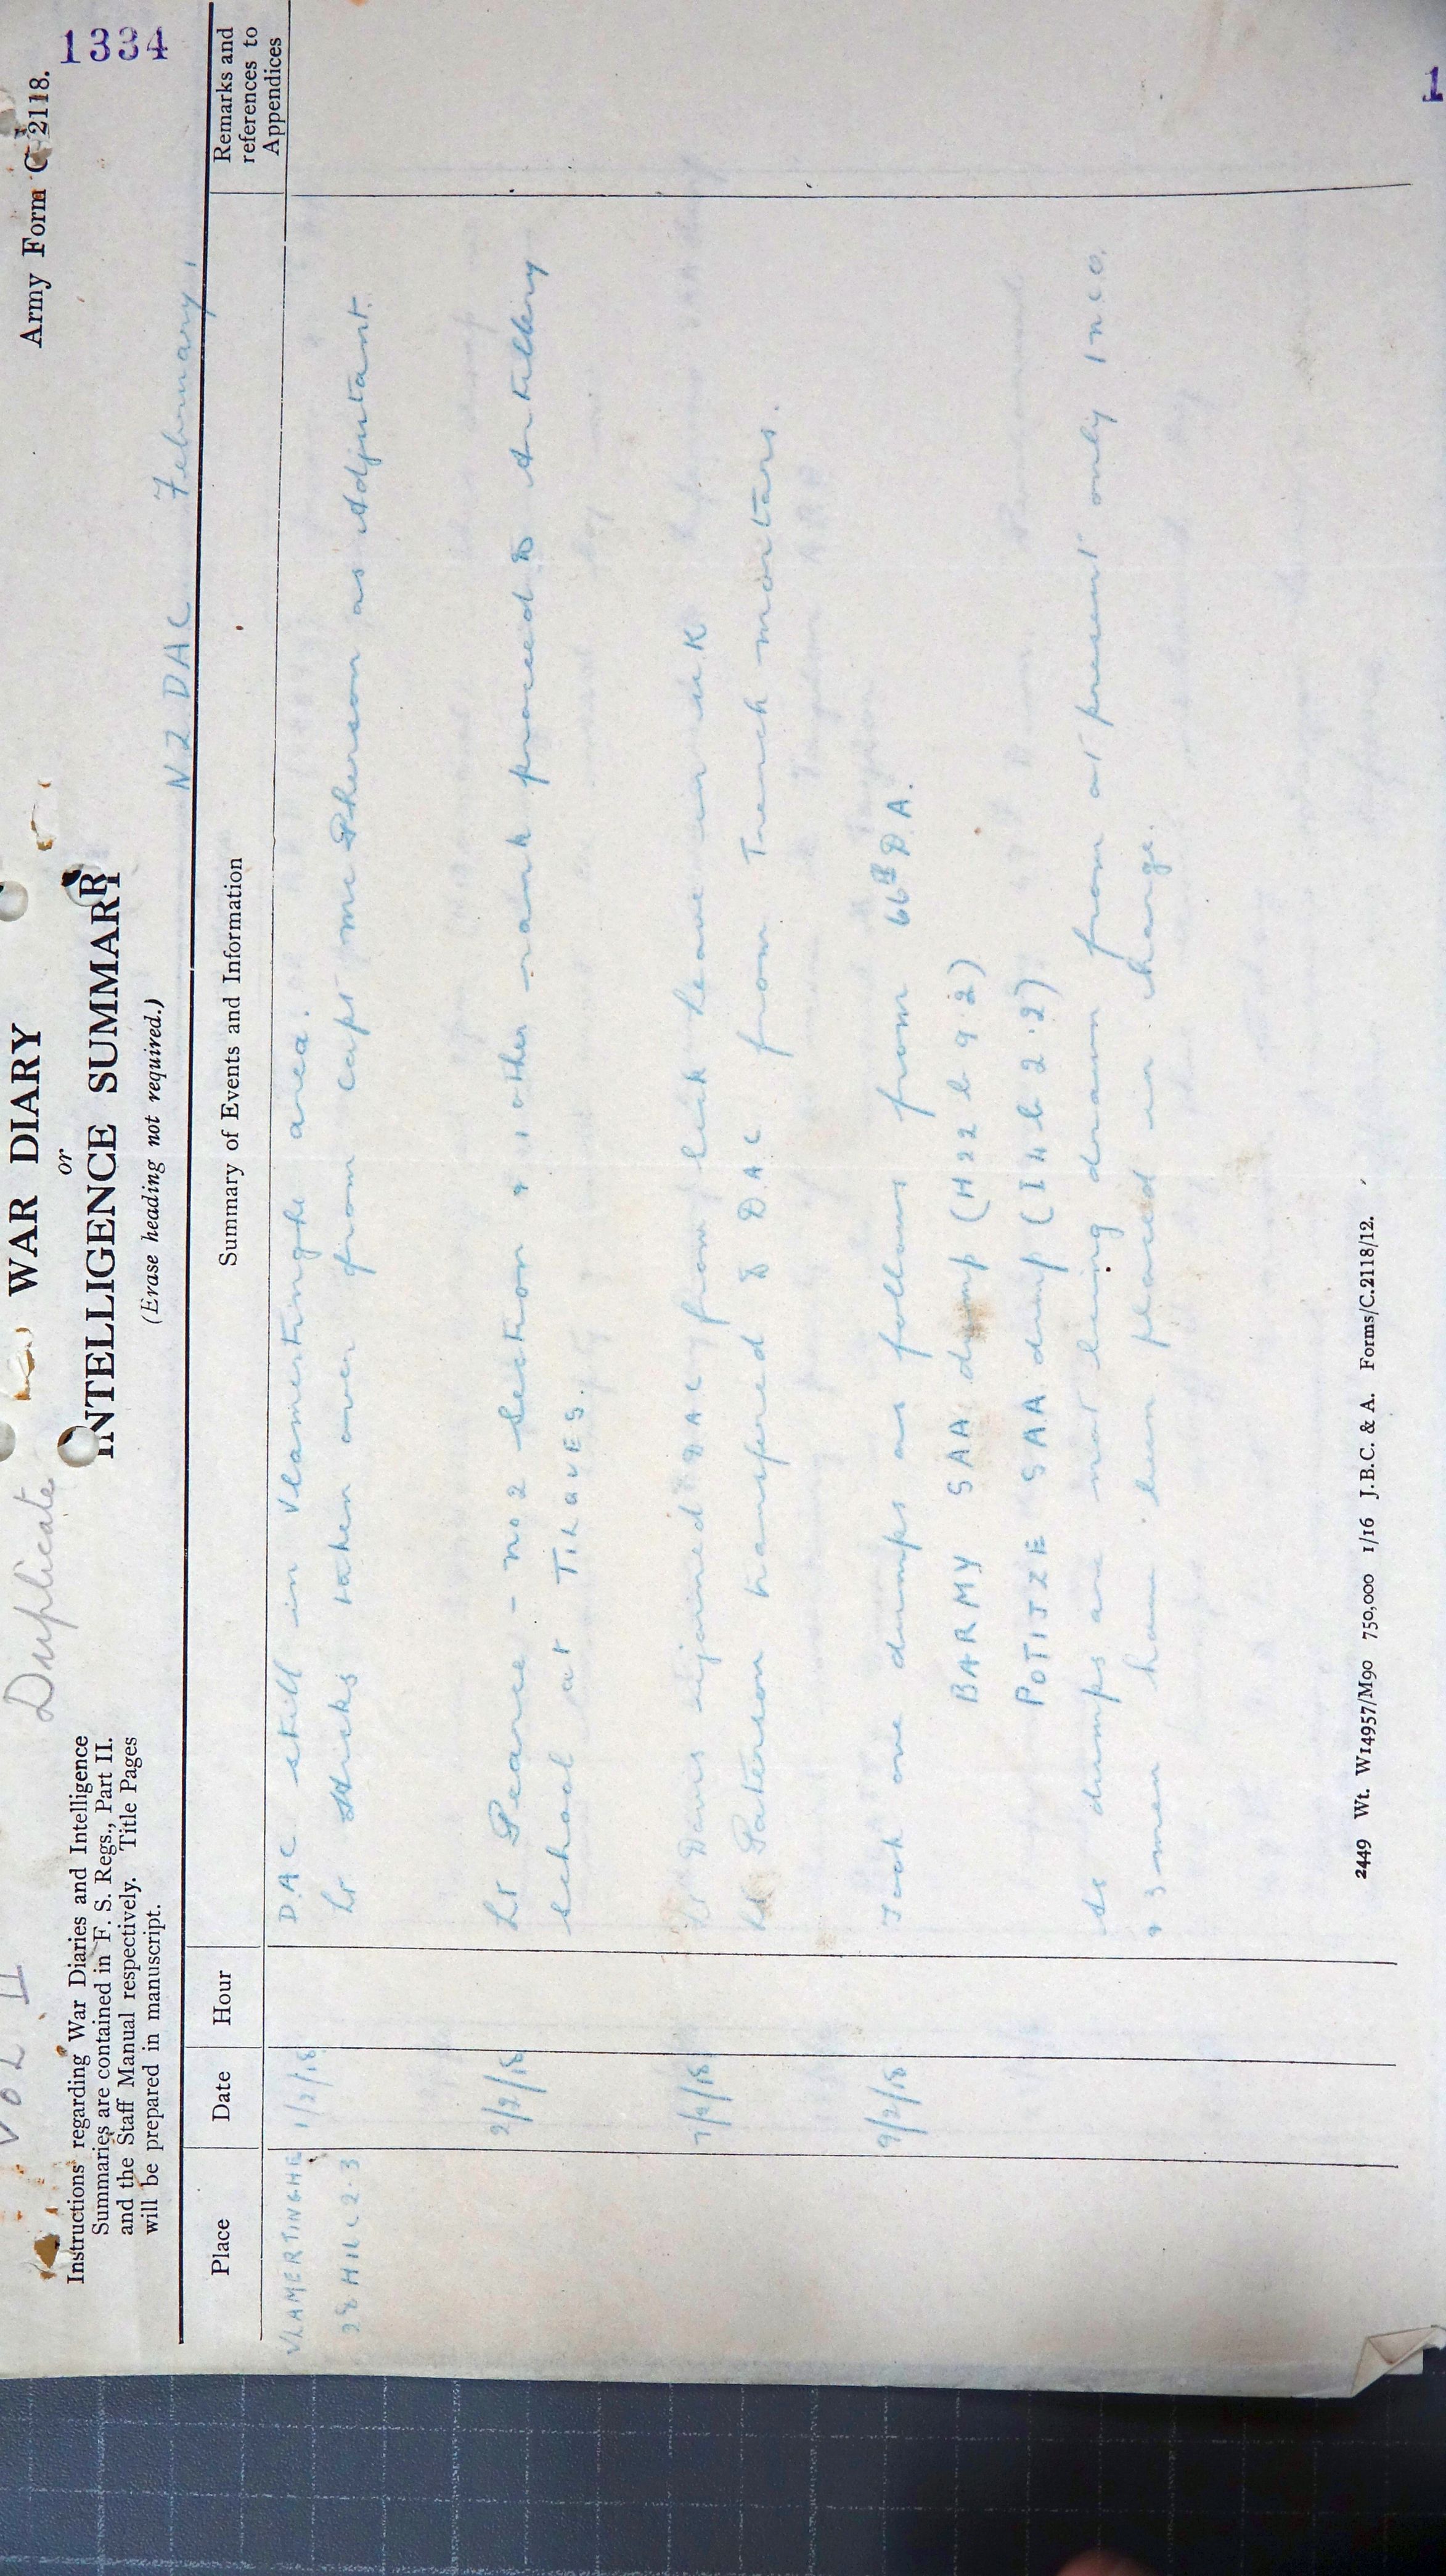 VOL II
Duplicate
WAR DIARY
or
INTELLIGENCE SUMMARY
(Erase heading not required.)
Army Form C. 2118.
1334
Instructions regarding War Diaries and Intelligence
Summaries are contained in F. S. Regs., Part II.
and the Staff Manual respectively. Title Pages
will be prepared in manuscript.
NZ DAC February,
Place Date Hour Summary of Events and Information Remarks and references to Appendices
VLAMERTINGHE 1/2/18 DAC still in Vlamertinghe area.
28 H11 c 2.3 Lt Hicks taken over from Capt McPherson as Adjutant.
2/2/18 Lt Pearce - No 2 Section & 1 other rank proceed to Artillery
School at TILQUES.
7/2/18 Lt Davis rejoined DAC from sick leave in U.K
Lt Paterson transferred to DAC from Trench mortars.
9/2/18 Took over dumps as follows from 66th DA.
BARMY SAA dump (H22 b 9.2)
POTIJZE SAA dump (I 4 b 2.2)
As dumps are not being drawn from at present only 1 nco.
& 3 men have been placed in charge.
2449 Wt. W14957/M90 750,000 1/16 J.B.C. & A. Forms/C.2118/12.
1